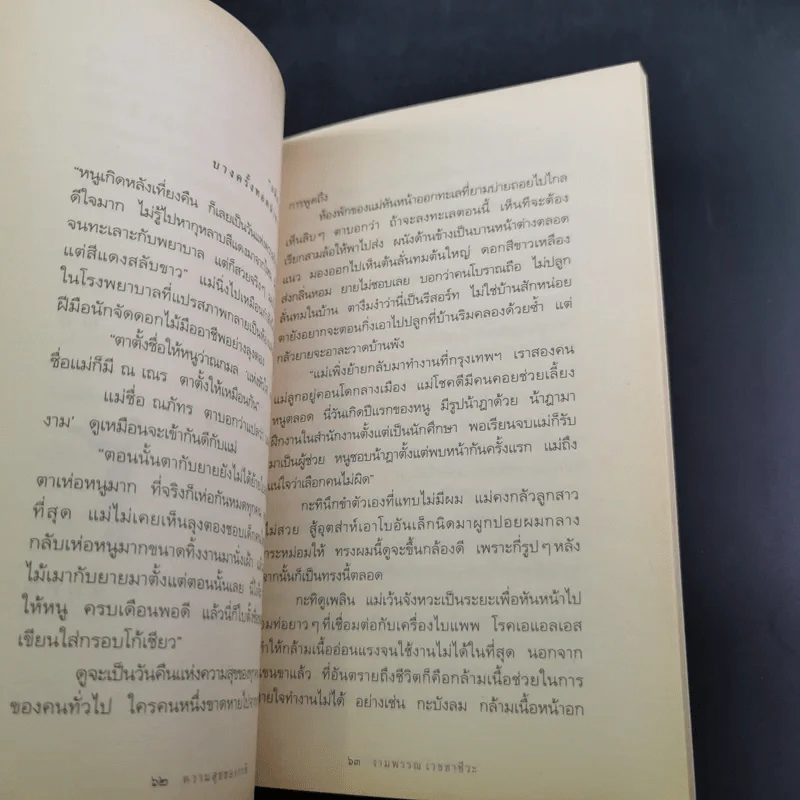 บางครั้ง
"หนูเกิดหลังเที่ยงคืน ก็เลยเป็นวัน
ดีใจมาก ไม่รู้ไปหากุหลาบสีแดงมาจาก
จนทะเลาะกับพยาบาล แต่ก็สวยจริงๆ
แต่สีแดงสลับขาว" แม่นิ่งไปเหมือน
ในโรงพยาบาลที่แปรสภาพกลายเป็น
ฝีมือนักจัดดอกไม้มืออาชีพอย่างลุงตอง
"ตาตั้งชื่อให้หนูว่าณกมล
ชื่อแม่ก็มี ณ เณร ตาตั้งให้เหมือนกัน"
แม่ชื่อ ณภัทร ตาบอกว่าแปลว่า
งาม' ดูเหมือนจะเข้ากันดีกับแม่
"ตอนนั้นตากับยายยังไม่ได้ย้าย
ตาเห่อหนูมาก ที่จริงก็เห่อกันหมดทุกคน
ที่สุด แม่ไม่เคยเห็นลุงตองชอบเด็ก
กลับเห่อหนูมากขนาดทิ้งงานมานั่งเฝ้า
ไม้เมากับยายมาตั้งแต่ตอนนั้นเลย
ให้หนู ครบเดือนพอดี แล้วนี่ก็โบตั้ง
เขียนใส่กรอบโก้เชียว"
ดูจะเป็นวันคืนแห่งความสุขของทุกคน
ของคนทั่วไป ใครคนหนึ่งขาดหายไป
๖๒ ความสุขของกะทิ
การพูดถึง
ห้องพักของแม่หันหน้าออกทะเลที่ยามบ่ายถอยไปไกล
เห็นลิบๆ ตาบอกว่า ถ้าจะลงทะเลตอนนี้ เห็นทีจะต้อง
เรียกสามล้อให้พาไปส่ง ผนังด้านข้างเป็นบานหน้าต่างตลอด
แนว มองออกไปเห็นต้นลั่นทมต้นใหญ่ ดอกสีขาวเหลือง
ส่งกลิ่นหอม ยายไม่ชอบเลย บอกว่าคนโบราณถือ ไม่ปลูก
ลั่นทมในบ้าน ตางึมงำว่านี่เป็นรีสอร์ท ไม่ใช่บ้านสักหน่อย
ตายังอยากจะตอนกิ่งเอาไปปลูกที่บ้านริมคลองด้วยซ้ำ แต่
กลัวยายจะอาละวาดบ้านพัง
"แม่เพิ่งย้ายกลับมาทำงานที่กรุงเทพฯ เราสองคน
แม่ลูกอยู่คอนโดกลางเมือง แม่โชคดีมีคนคอยช่วยเลี้ยง
หนูตลอด นี่วันเกิดปีแรกของหนู มีรูปน้าฎาด้วย น้าฎามา
ฝึกงานในสำนักงานตั้งแต่เป็นนักศึกษา พอเรียนจบแม่ก็รับ
มาเป็นผู้ช่วย หนูชอบน้าฎาตั้งแต่พบหน้ากันครั้งแรก แม่ถึง
แน่ใจว่าเลือกคนไม่ผิด"
กะทินึกขำตัวเองที่แทบไม่มีผม แม่คงกลัวลูกสาว
ไม่สวย สู้อุตส่าห์เอาโบอันเล็กนิดมาผูกปอยผมกลาง
กระหม่อมให้ ทรงผมนี้ดูจะขึ้นกล้องดี เพราะกี่รูปๆ หลัง
จากนั้นก็เป็นทรงนี้ตลอด
กะทิดูเพลิน แม่เว้นจังหวะเป็นระยะเพื่อหันหน้าไป
อมท่อยาวๆ ที่เชื่อมต่อกับเครื่องไบแพพ โรคเอแอลเอส
ทำให้กล้ามเนื้ออ่อนแรงจนใช้งานไม่ได้ในที่สุด นอกจาก
แขนขาแล้ว ที่อันตรายถึงชีวิตก็คือกล้ามเนื้อช่วยในการ
หายใจทำงานไม่ได้ อย่างเช่น กะบังลม กล้ามเนื้อหน้าอก
๖๓ งามพรรณ เวชชาชีวะ